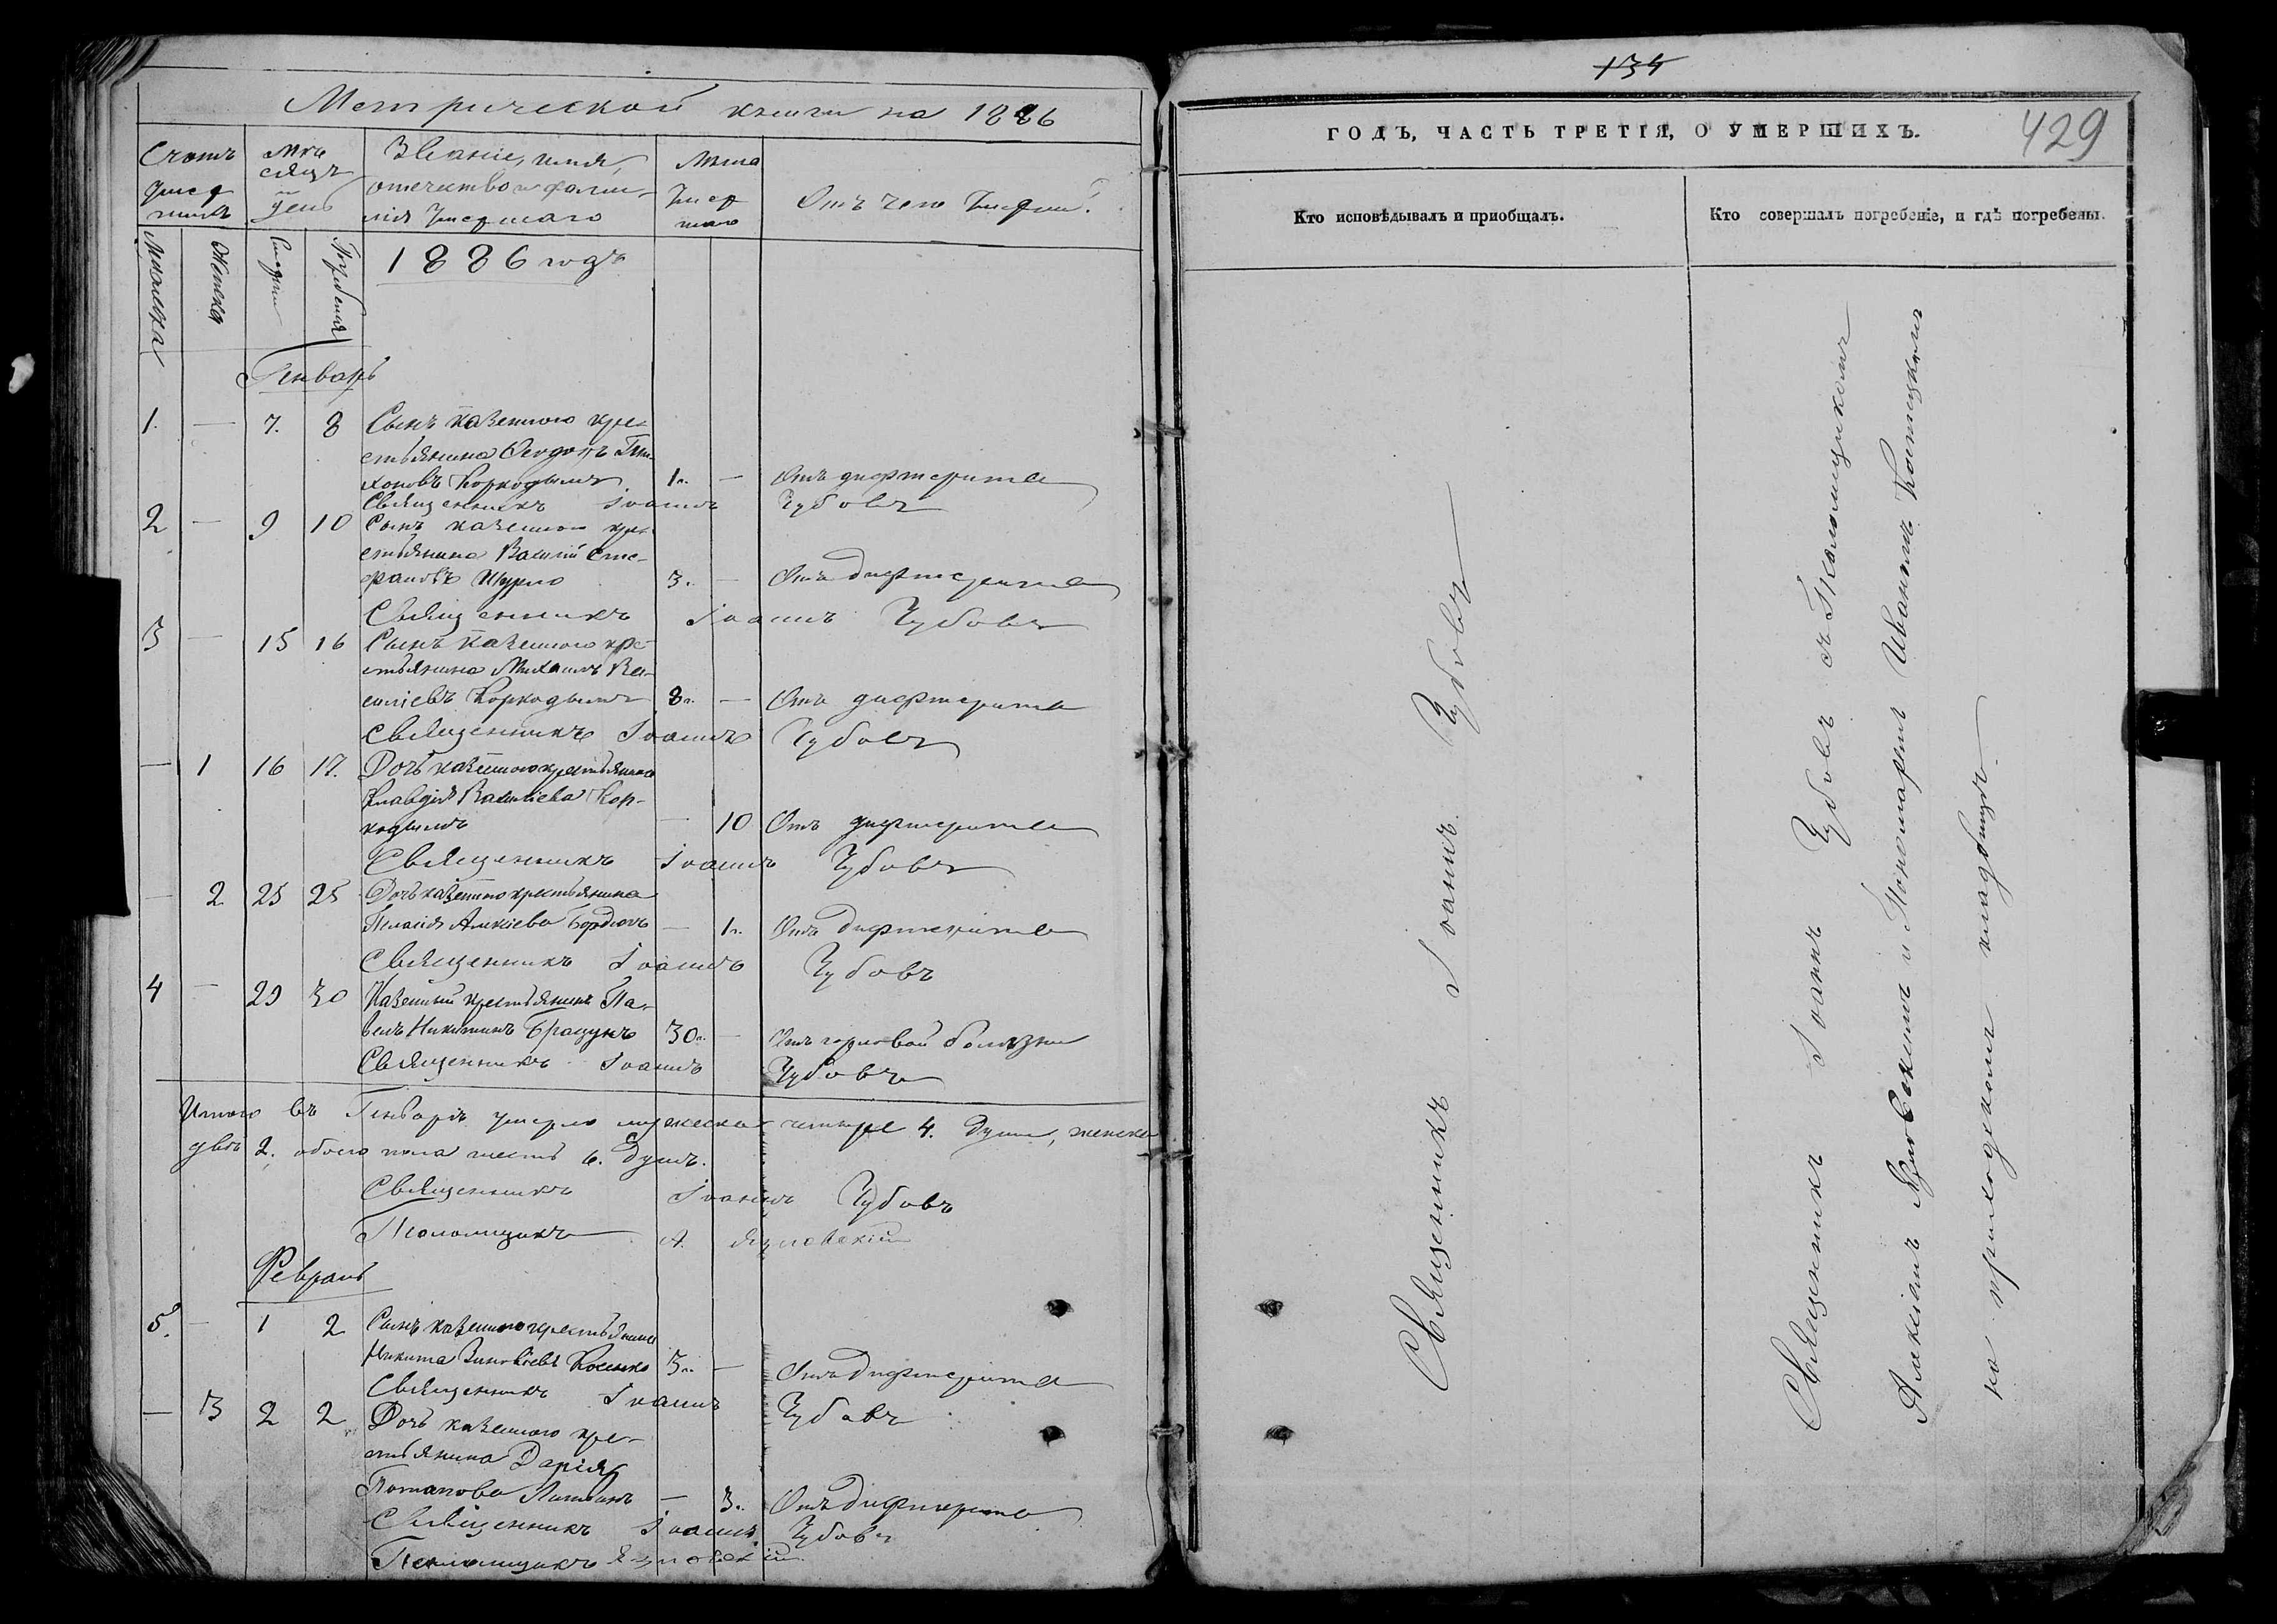 Метрической книги на 1886
Счетъ умершихъ
Мѣсяцъ и день
Званіе, имя, отечество и фамилія Умершаго
Лѣта Умершаго
Отъ чего Умершій.
Мужеска
Женска
Смерти
Погребенія
1886 годъ
Генварь
1. — 7. 8 Сынъ казеннаго кре-
стьянина Феодоръ Ти-
хоновъ Коркодымъ 1 г. — Отъ дифтерита
Священникъ Іоаннъ Чубовъ
2 — 9 10 Сынъ казеннаго кре-
стьянина Василій Сте-
фановъ Шурло 3 г. — Отъ дифтерита
Священникъ Іоаннъ Чубовъ
3 — 15 16 Сынъ казеннаго кре-
стьянина Михаилъ Ва-
силіевъ Коркодымъ 8 г. — Отъ дифтерита
Священникъ Іоаннъ Чубовъ
— 1 16 17. Дочь казеннаго крестьянина
Клавдія Василіева Кор-
кодымъ — 10 Отъ дифтерита
Священникъ Іоаннъ Чубовъ
— 2 25 25 Дочь казеннаго крестьянина
Пелагія Алексіева — 1 г. Отъ дифтерита
Священникъ Іоаннъ Чубовъ
4 — 29 30 Казенный крестьянинъ Па-
велъ Никитинъ 30 г. — Отъ горловой болезни
Священникъ Іоаннъ Чубовъ
Итого въ Генварѣ умерло мужеска четыре 4. души, женска
двѣ 2. обоего пола шесть 6. душъ.
Священникъ Іоаннъ Чубовъ
Псаломщикъ А. Яриовскій
Февраль
5. — 1 2 Сынъ казеннаго крестьянина
Никита Зиновіевъ Косенко 3 г. — Отъ дифтерита
Священникъ Іоаннъ Чубовъ
— 3 2 2 Дочь казеннаго кре-
стьянина Дарія
Потапова — 3 г. Отъ дифтерита
Священникъ Іоаннъ Чубовъ
Псаломщикъ
134
429
ГОДЪ, ЧАСТЬ ТРЕТІЯ, О УМЕРШИХЪ.
Кто исповѣдывалъ и пріобщалъ.
Кто совершалъ погребеніе, и гдѣ погребены.
Священникъ Іоаннъ Чубовъ
Священникъ Іоаннъ Чубовъ съ Псаломщикомъ
Алексіемъ и Пономаремъ Иваномъ
на приходскомъ кладбищѣ